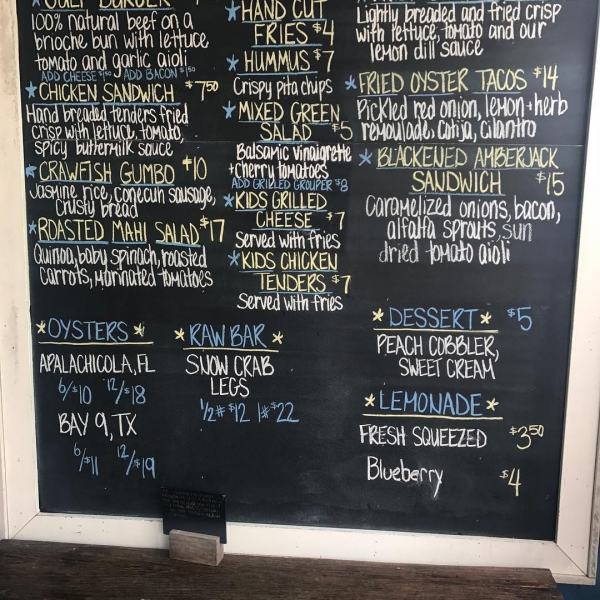 GULF BURGER
100% natural beef on a
brioche bun with lettuce
tomato and garlic aioli
ADD CHEESE $1.50 ADD BACON $1.50
*CHICKEN SANDWICH $7.50
Hand breaded tenders fried
crisp with lettuce, tomato,
spicy buttermilk sauce
*CRAWFISH GUMBO $10
Jasmine rice, conecuh sausage,
crusty bread
*ROASTED MAHI SALAD $17
Quinoa, baby spinach, roasted
carrots, marinated tomatoes
*HAND CUT
FRIES $4
*HUMMUS $7
Crispy pita chips
*MIXED GREEN
SALAD $5
Balsamic vinaigrette
+ cherry tomatoes
ADD GRILLED GROUPER $8
*KIDS GRILLED
CHEESE $7
Served with fries
*KIDS CHICKEN
TENDERS $7
Served with fries
Lightly breaded and fried crisp
with lettuce, tomato and our
lemon dill sauce
*FRIED OYSTER TACOS $14
Pickled red onion, lemon + herb
remoulade, cotija, cilantro
*BLACKENED AMBERJACK
SANDWICH $15
Caramelized onions, bacon,
alfalfa sprouts, sun
dried tomato aioli
*OYSTERS*
APALACHICOLA, FL
6/$10 12/$18
BAY 9, TX
6/$11 12/$19
*RAW BAR*
SNOW CRAB
LEGS
1/2# $12 1# $22
*DESSERT* $5
PEACH COBBLER,
SWEET CREAM
*LEMONADE*
FRESH SQUEEZED $3.50
Blueberry $4